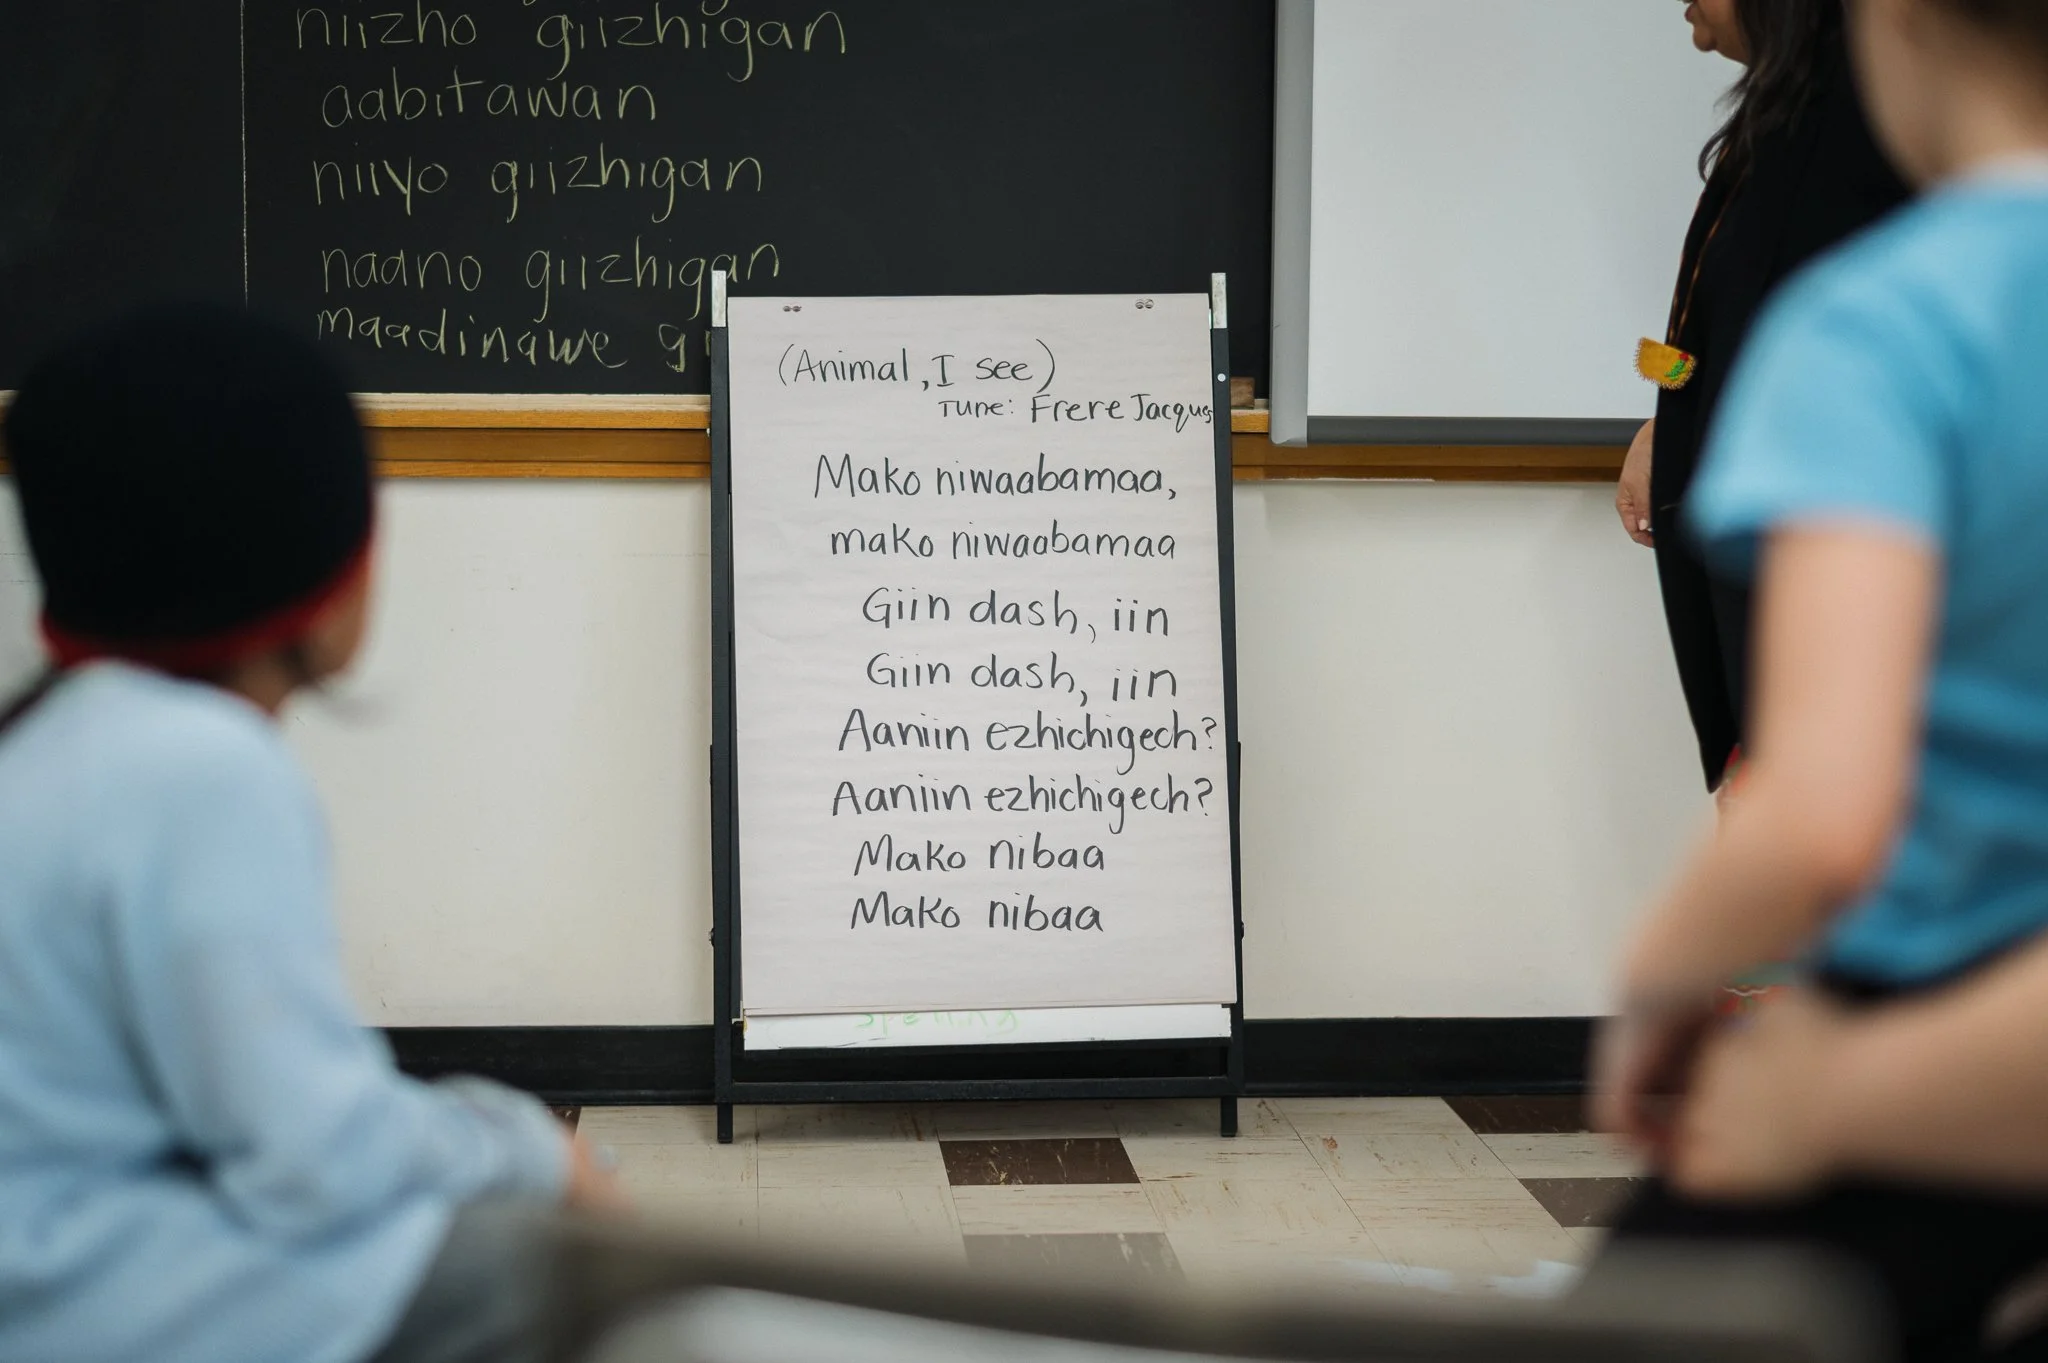 niizho giizhigan
aabitawan
niiyo giizhigan
naano giizhigan
maadinawe
(Animal, I see)
Tune: Frere Jacques
Mako niwaabamaa,
mako niwaabamaa
Giin dash, iin
Giin dash, iin
Aaniin ezhichigech?
Aaniin ezhichigech?
Mako nibaa
Mako nibaa